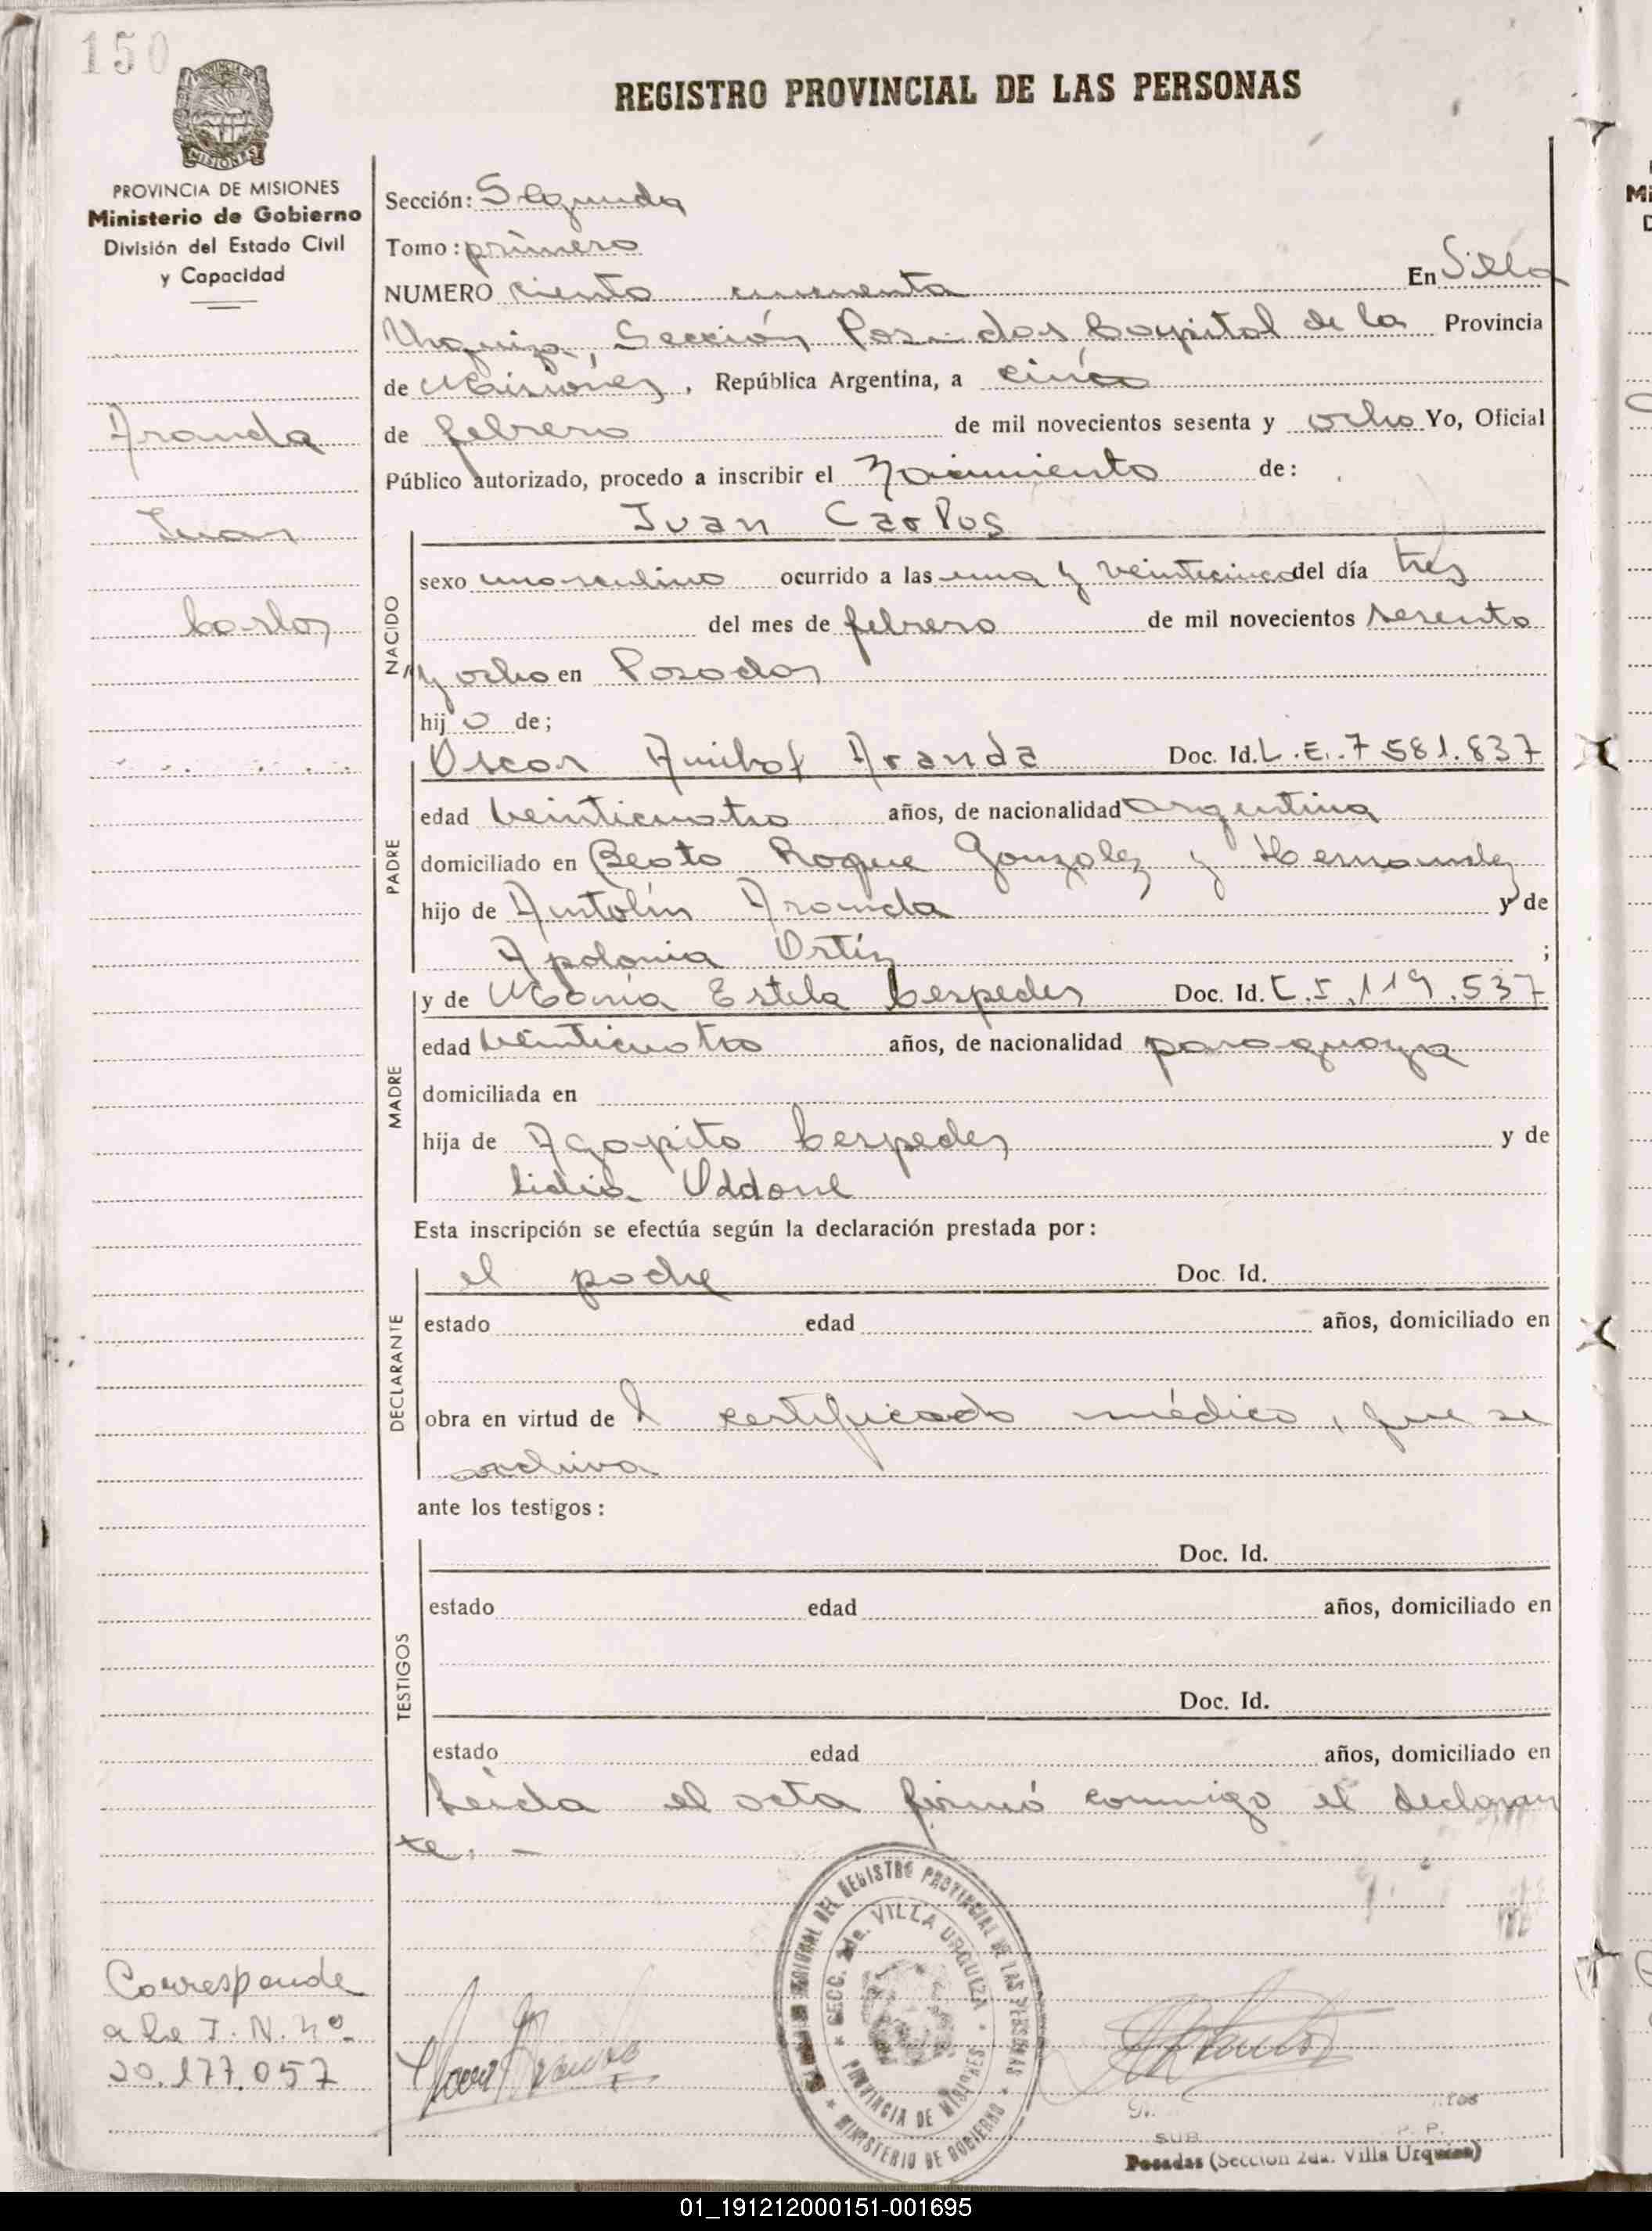 150
PROVINCIA DE MISIONES
Ministerio de Gobierno
División del Estado Civil
y Capacidad
Aranda
Juan
Carlos
Corresponde
a la T. N. nº
20.177.057
REGISTRO PROVINCIAL DE LAS PERSONAS
Sección: Segunda
Tomo: primero
NUMERO ciento cincuenta En Villa
Urquiza, Sección Posadas Capital de la Provincia
de Misiones, República Argentina, a cinco
de febrero de mil novecientos sesenta y ocho Yo, Oficial
Público autorizado, procedo a inscribir el Nacimiento de:
Juan Carlos
NACIDO
sexo masculino ocurrido a las una y veinticinco del día tres
del mes de febrero de mil novecientos sesenta
y ocho en Posadas
hijo de;
PADRE
Oscar Anibal Aranda Doc. Id. L.E. 7.581.837
edad veinticuatro años, de nacionalidad argentina
domiciliado en Beato Roque Gonzalez y Hernandez
hijo de Antolín Aranda y de
Apolonia Ortíz ;
MADRE
y de María Estela Cespedes Doc. Id. C.I. 119.537
edad veinticuatro años, de nacionalidad paraguaya
domiciliada en
hija de Agapito Cespedes y de
Lidia Oddone
Esta inscripción se efectúa según la declaración prestada por:
DECLARANTE
el padre Doc. Id.
estado edad años, domiciliado en
obra en virtud de l certificado médico, que se
archiva
ante los testigos:
TESTIGOS
Doc. Id.
estado edad años, domiciliado en
Doc. Id.
estado edad años, domiciliado en
Leída el acta firmó conmigo el declaran
te. -
REGISTRO PROVINCIAL DE LAS PERSONAS
SECC. 2da. VILLA URQUIZA
PROVINCIA DE MISIONES
MINISTERIO DE GOBIERNO
Posadas (Sección 2da. Villa Urquiza)
01_191212000151-001695